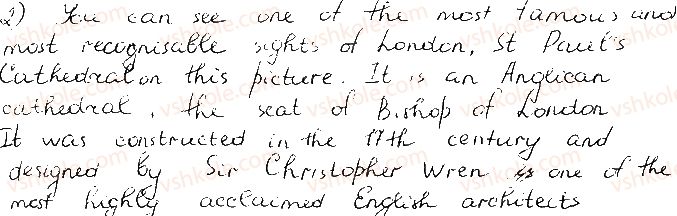 2) You can see one of the most famous and
most recognisable sights of London, St Paul's
Cathedral on this picture. It is an Anglican
cathedral, the seat of Bishop of London
It was constructed in the 17th century and
designed by Sir Christopher Wren is one of the
most highly acclaimed English architects